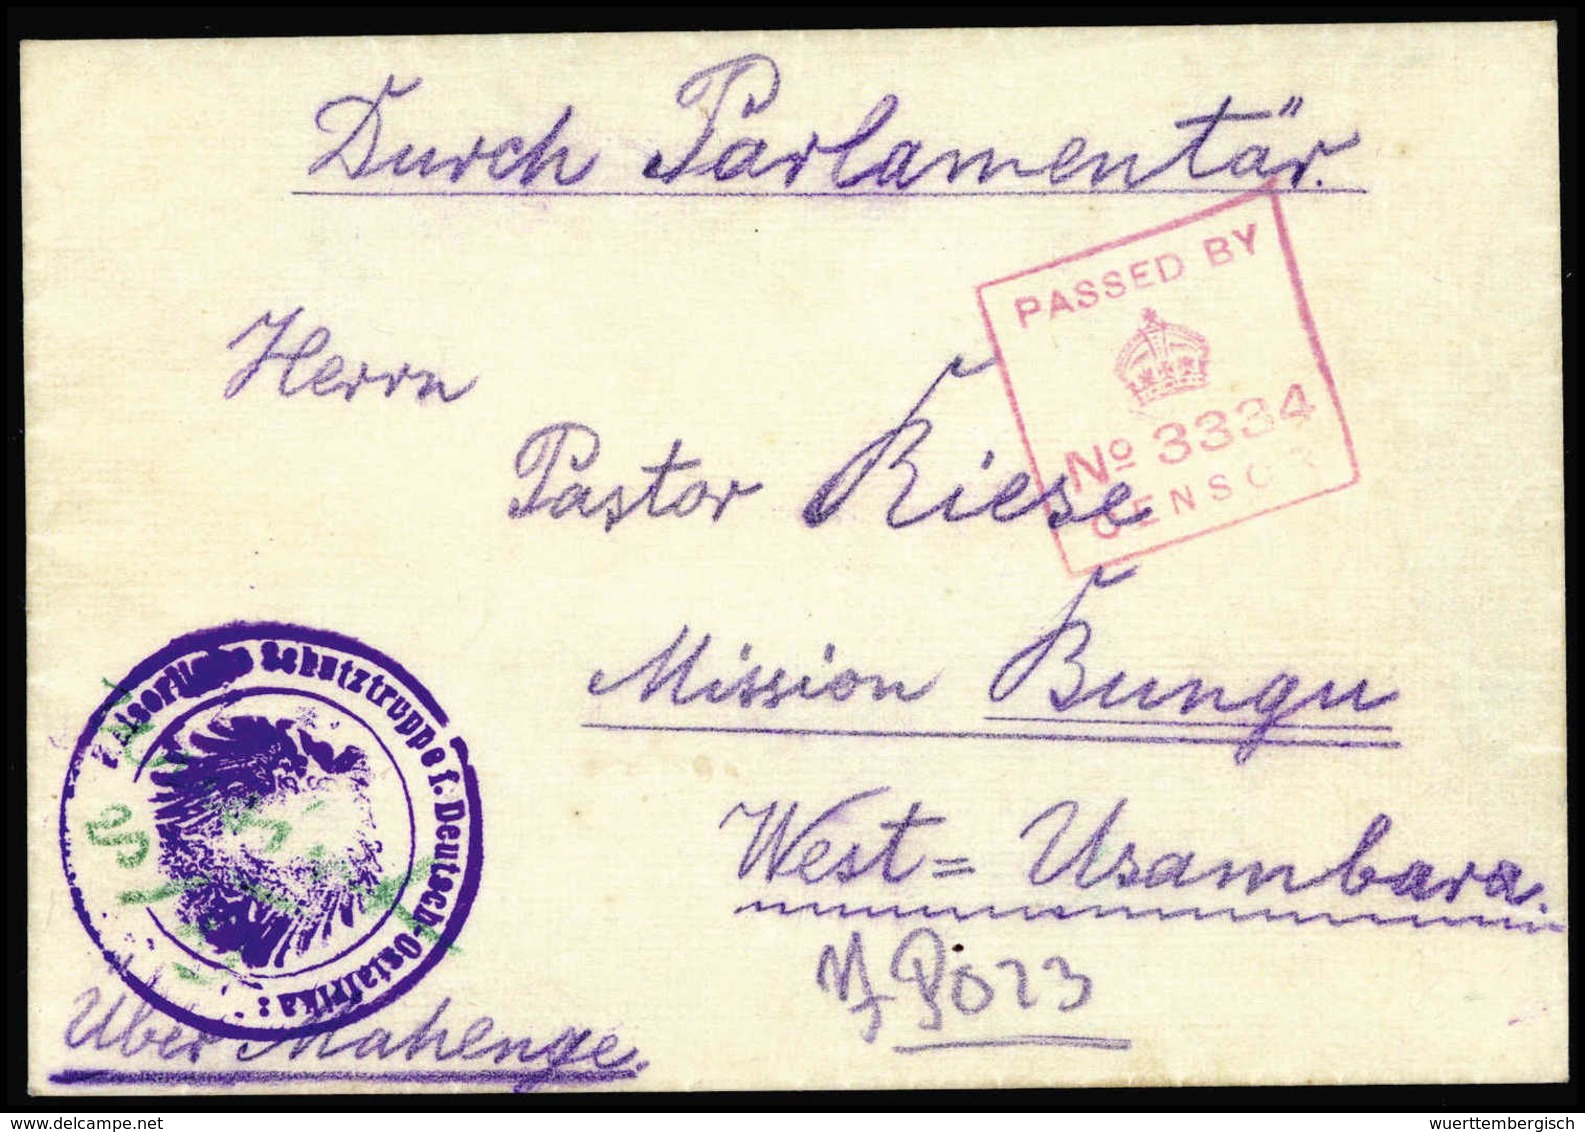 Durch Parlamentär.
PASSED BY
Nº 3334
CENSOR
Herrn
Pastor Riese
Mission Bungu
West= Usambara.
Kaiserliche Schutztruppe f. Deutsch-Ostafrika:
Über Mahenge.
delcampe.net
wuerttembergisch